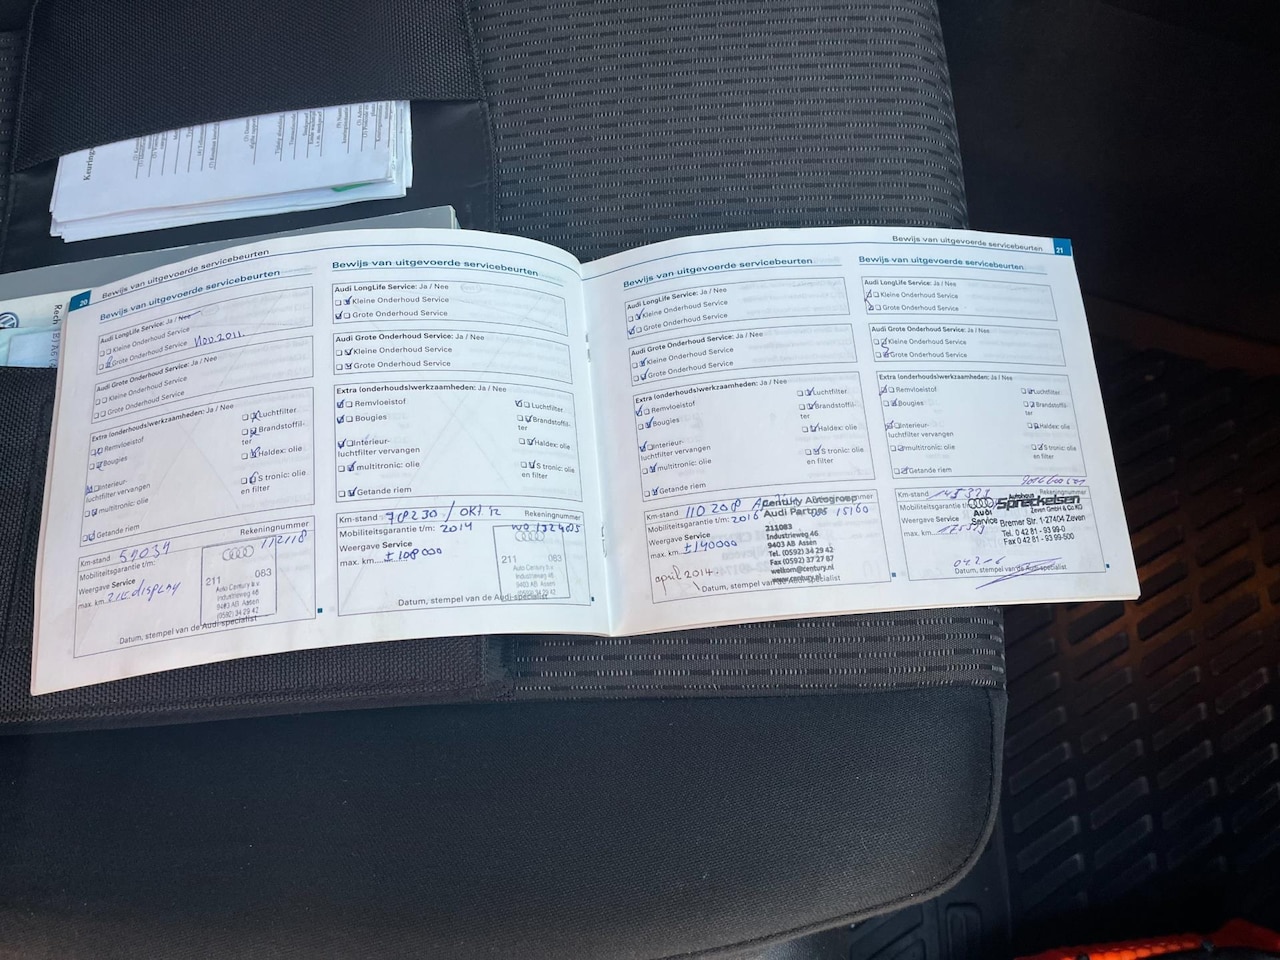 Keuring
20
Bewijs van uitgevoerde servicebeurten
Bewijs van uitgevoerde servicebeurten
Audi LongLife Service: Ja / Nee
Kleine Onderhoud Service
Grote Onderhoud Service Nov. 2011.
Audi Grote Onderhoud Service: Ja / Nee
Kleine Onderhoud Service
Grote Onderhoud Service
Extra (onderhouds)werkzaamheden: Ja / Nee
Remvloeistof
Luchtfilter
Bougies
Brandstoffil-
ter
Haldex: olie
Interieur-
luchtfilter vervangen
S tronic: olie
en filter
multitronic: olie
Getande riem
Km-stand
Rekeningnummer
Mobiliteitsgarantie t/m:
112118
Weergave Service
max. km. zie display
211 063
Auto Century b.v.
Industrieweg 46
9403 AB Assen
(0592) 34 29 42
Datum, stempel van de Audi-specialist
Bewijs van uitgevoerde servicebeurten
Audi LongLife Service: Ja / Nee
Kleine Onderhoud Service
Grote Onderhoud Service
Audi Grote Onderhoud Service: Ja / Nee
Kleine Onderhoud Service
Grote Onderhoud Service
Extra (onderhouds)werkzaamheden: Ja / Nee
Remvloeistof
Luchtfilter
Bougies
Brandstoffil-
ter
Interieur-
luchtfilter vervangen
Haldex: olie
multitronic: olie
S tronic: olie
en filter
Getande riem
Km-stand 78230 / okt 12
Rekeningnummer
Mobiliteitsgarantie t/m: 2014
Weergave Service
max. km. ± 108000
211 063
Auto Century b.v.
Industrieweg 46
9403 AB Assen
(0592) 34 29 42
Datum, stempel van de Audi-specialist
Bewijs van uitgevoerde servicebeurten
21
Bewijs van uitgevoerde servicebeurten
Audi LongLife Service: Ja / Nee
Kleine Onderhoud Service
Grote Onderhoud Service
Audi Grote Onderhoud Service: Ja / Nee
Kleine Onderhoud Service
Grote Onderhoud Service
Extra (onderhouds)werkzaamheden: Ja / Nee
Remvloeistof
Luchtfilter
Bougies
Brandstoffil-
ter
Interieur-
luchtfilter vervangen
Haldex: olie
multitronic: olie
S tronic: olie
en filter
Getande riem
Km-stand 110208
Mobiliteitsgarantie t/m: 2016
Weergave Service
max. km. ± 140000
april 2014
Century Autogroep
Audi Partner
15160
211063
Industrieweg 46
9403 AB Assen
Tel. (0592) 34 29 42
Fax (0592) 37 27 87
welkom@century.nl
www.century.nl
Datum, stempel van de Audi-specialist
Bewijs van uitgevoerde servicebeurten
Audi LongLife Service: Ja / Nee
Kleine Onderhoud Service
Grote Onderhoud Service
Audi Grote Onderhoud Service: Ja / Nee
Kleine Onderhoud Service
Grote Onderhoud Service
Extra (onderhouds)werkzaamheden: Ja / Nee
Remvloeistof
Luchtfilter
Bougies
Brandstoffil-
ter
Interieur-
luchtfilter vervangen
Haldex: olie
multitronic: olie
S tronic: olie
en filter
Getande riem
Km-stand
Rekeningnummer
Mobiliteitsgarantie
Weergave Service
max. km.
Autohaus
Spreckelsen
Zeven GmbH & Co.KG
Audi
Service
Bremer Str. 1·27404 Zeven
Tel. 0 42 81 - 93 99-0
Fax 0 42 81 - 93 99-500
Datum, stempel van de Audi-specialist